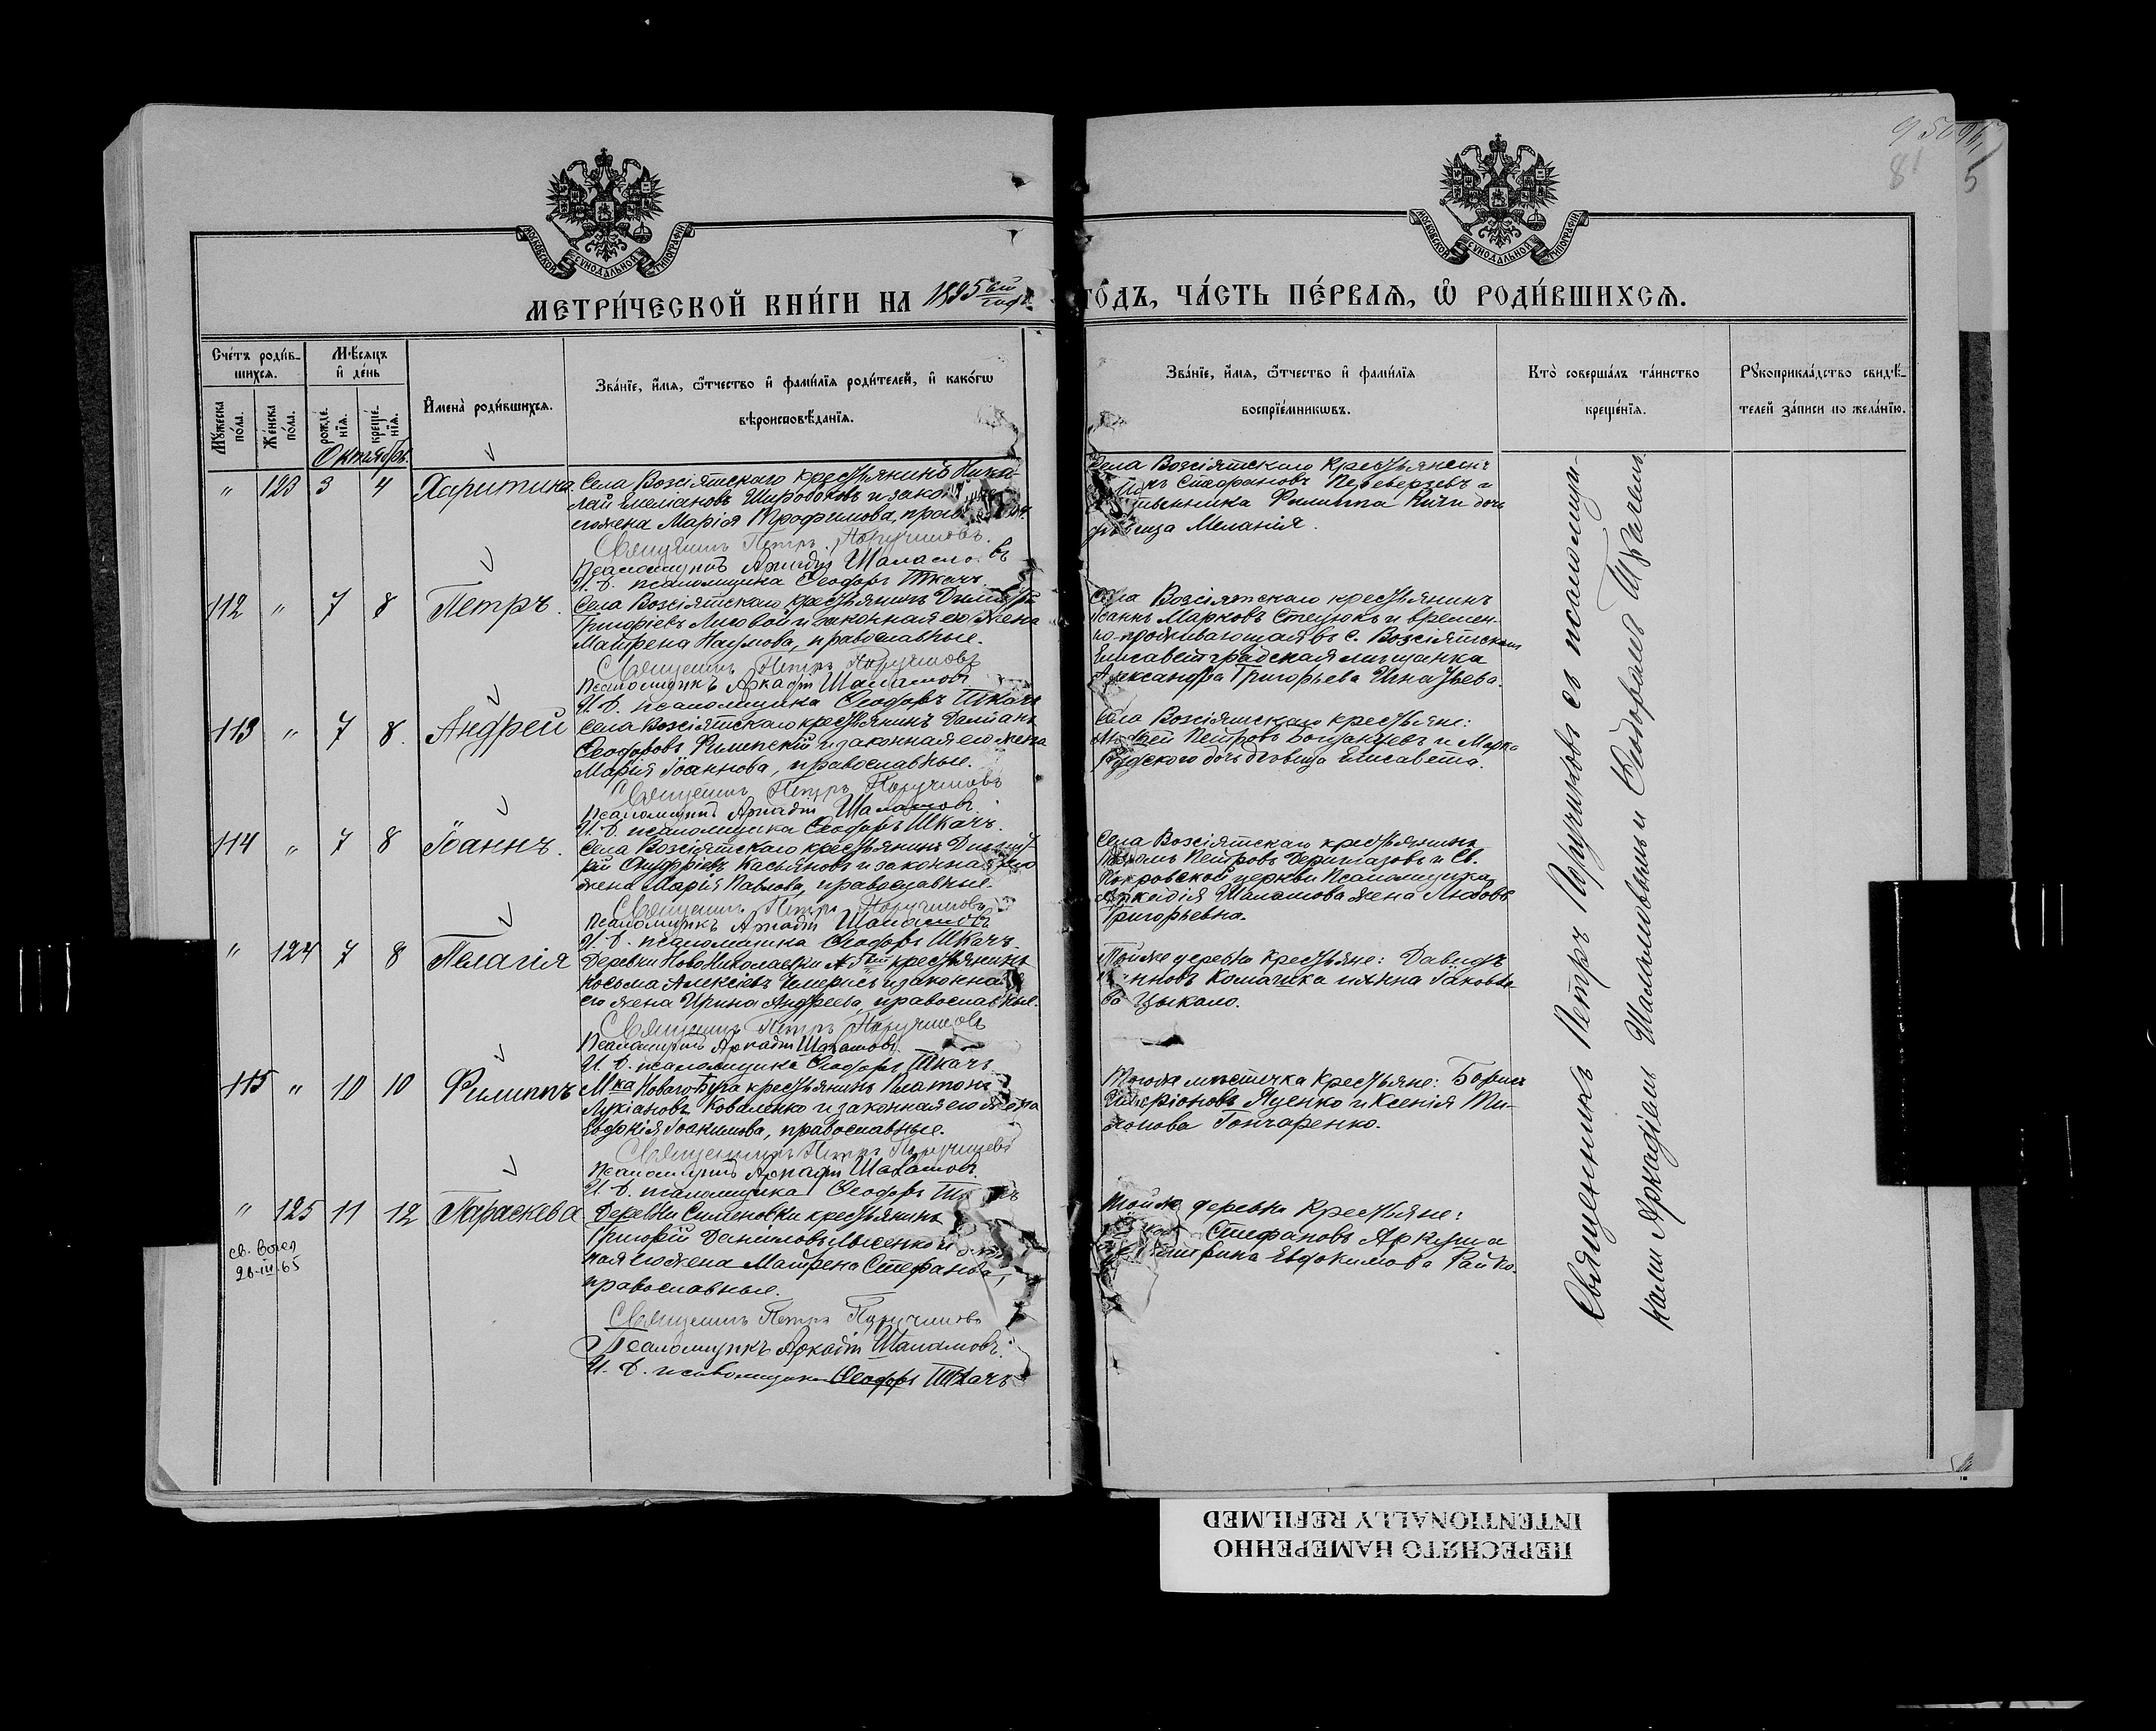 МОСКОВСКОЙ СѴНОДАЛЬНОЙ ТИПОГРАФІИ
МОСКОВСКОЙ СѴНОДАЛЬНОЙ ТИПОГРАФІИ
МЕТРИ́ЧЕСКОЙ КНИ́ГИ НА 1895 ый годъ
ГО́ДЪ, ЧА́СТЬ ПЕ́РВАѦ, Ѡ РОДИ́ВШИХСѦ.
Сче́тъ роди́в-
шихсѧ.
Мꙋ́жеска по́ла.
Же́нска по́ла.
Мѣ́сѧцъ
и де́нь
рожде́-
нїѧ.
креще́-
нїѧ.
Имена̀ роди́вшихсѧ.
Зва́нїе, и́мѧ, ѻ́тчество и фами́лїѧ роди́телей, и како́гѡ
вѣроисповѣ́данїѧ.
Зва́нїе, и́мѧ, ѻ́тчество и фами́лїѧ
воспрїе́мникѡвъ.
Кто̀ соверша́лъ та́инство
креще́нїѧ.
Рꙋкоприкла́дство свидѣ́-
телей за́писи по жела́нїю.
Октябрь.
" 123 3 4 Харитина.
Села Возсіятскаго крестьянинъ Нико-
лай Емеліановъ Широконовъ и закон
его жена Марія Трофимова, прав
Священникъ Петръ Поручиковъ.
Псаломщикъ Аркадій Шаламовъ
И. д. псаломщика Ѳеодоръ Ткачъ.
Села Возсіятскаго крестьянинъ
Стефановъ Переверзевъ и
Филиппа Кичи дочь
дѣвица Меланія.
112 " 7 8 Петръ.
Села Возсіятскаго крестьянинъ Димитрій
Григоріевъ Лиговой и законная его жена
Матрена Наумова, православные.
Священникъ Петръ Поручиковъ
Псаломщикъ Аркадій Шаламовъ
И. д. псаломщика Ѳеодоръ Ткачъ
Села Возсіятскаго крестьянинъ
Іоаннъ Марковъ Стецюкъ и времен-
но проживающая въ с. Возсіятскомъ
Елисаветградская мѣщанка
Александра Григорьева Игнатьева.
113 " 7 8. Андрей
Села Возсіятскаго крестьянинъ Даміанъ
Ѳеодоровъ Филипскій и законная его жена
Марія Іоаннова, православные.
Священникъ Петръ Поручиковъ
Псаломщикъ Аркадій Шаламовъ.
И. д. псаломщика Ѳеодоръ Ткачъ.
Села Возсіятскаго крестьяне:
Петровъ и Марка
дочь дѣвица Елисавета.
114 " 7 8 Іоаннъ.
Села Возсіятскаго крестьянинъ Димит-
рій Онуфріевъ Касьяновъ и законная его
жена Марія Павлова, православные.
Священникъ Петръ Поручиковъ
Псаломщикъ Аркадій Шаламовъ
И. д. псаломщика Ѳеодоръ Ткачъ.
Села Возсіятскаго крестьянинъ
Петровъ Черниговъ и Св.
Покровской церкви Псаломщика
Аркадія Шаламова жена Любовь
Григорьевна.
" 124 7 8 Пелагія
Деревни Новониколаевки № 5ый крестьянинъ
Косьма Алексіевъ Чемерисъ и законная
его жена Ирина Андреева, православные.
Священникъ Петръ Поручиковъ
Псаломщикъ Аркадій Шаламовъ.
И. д. псаломщика Ѳеодоръ Ткачъ
Той же деревни крестьяне: Давидъ
Іоанновъ Комашка и Анна Іаковле-
ва Цыкало.
115 " 10 10 Филиппъ
Мка Новаго-Буга крестьянинъ Платонъ
Лукіановъ Коваленко и законная его жена
Евдокія Іоакимова, православные.
Священникъ Петръ Поручиковъ
Псаломщикъ Аркадій Шаламовъ.
И. д. псаломщика Ѳеодоръ Ткачъ
Того же мѣстечка крестьяне: Борисъ
Яценко и Ксенія Ти-
Гончаренко.
" 125 11 12 Параскева
Деревни Симоновки крестьянинъ
Григорій Даниловъ Лысенко и закон
ная его жена Матрена Стефанова,
православные.
Священникъ Петръ Поручиковъ
Псаломщикъ Аркадій Шаламовъ.
И. д. псаломщика Ѳеодоръ Ткачъ
Той же деревни крестьяне:
Стефановъ Аркуша
Евдокимова Райко.
Священникъ Петръ Поручиковъ съ псаломщи-
ками Аркадіемъ Шаламовымъ и Ѳеодоромъ Ткачемъ.
ПЕРЕСНЯТО НАМЕРЕННО
INTENTIONALLY REFILMED